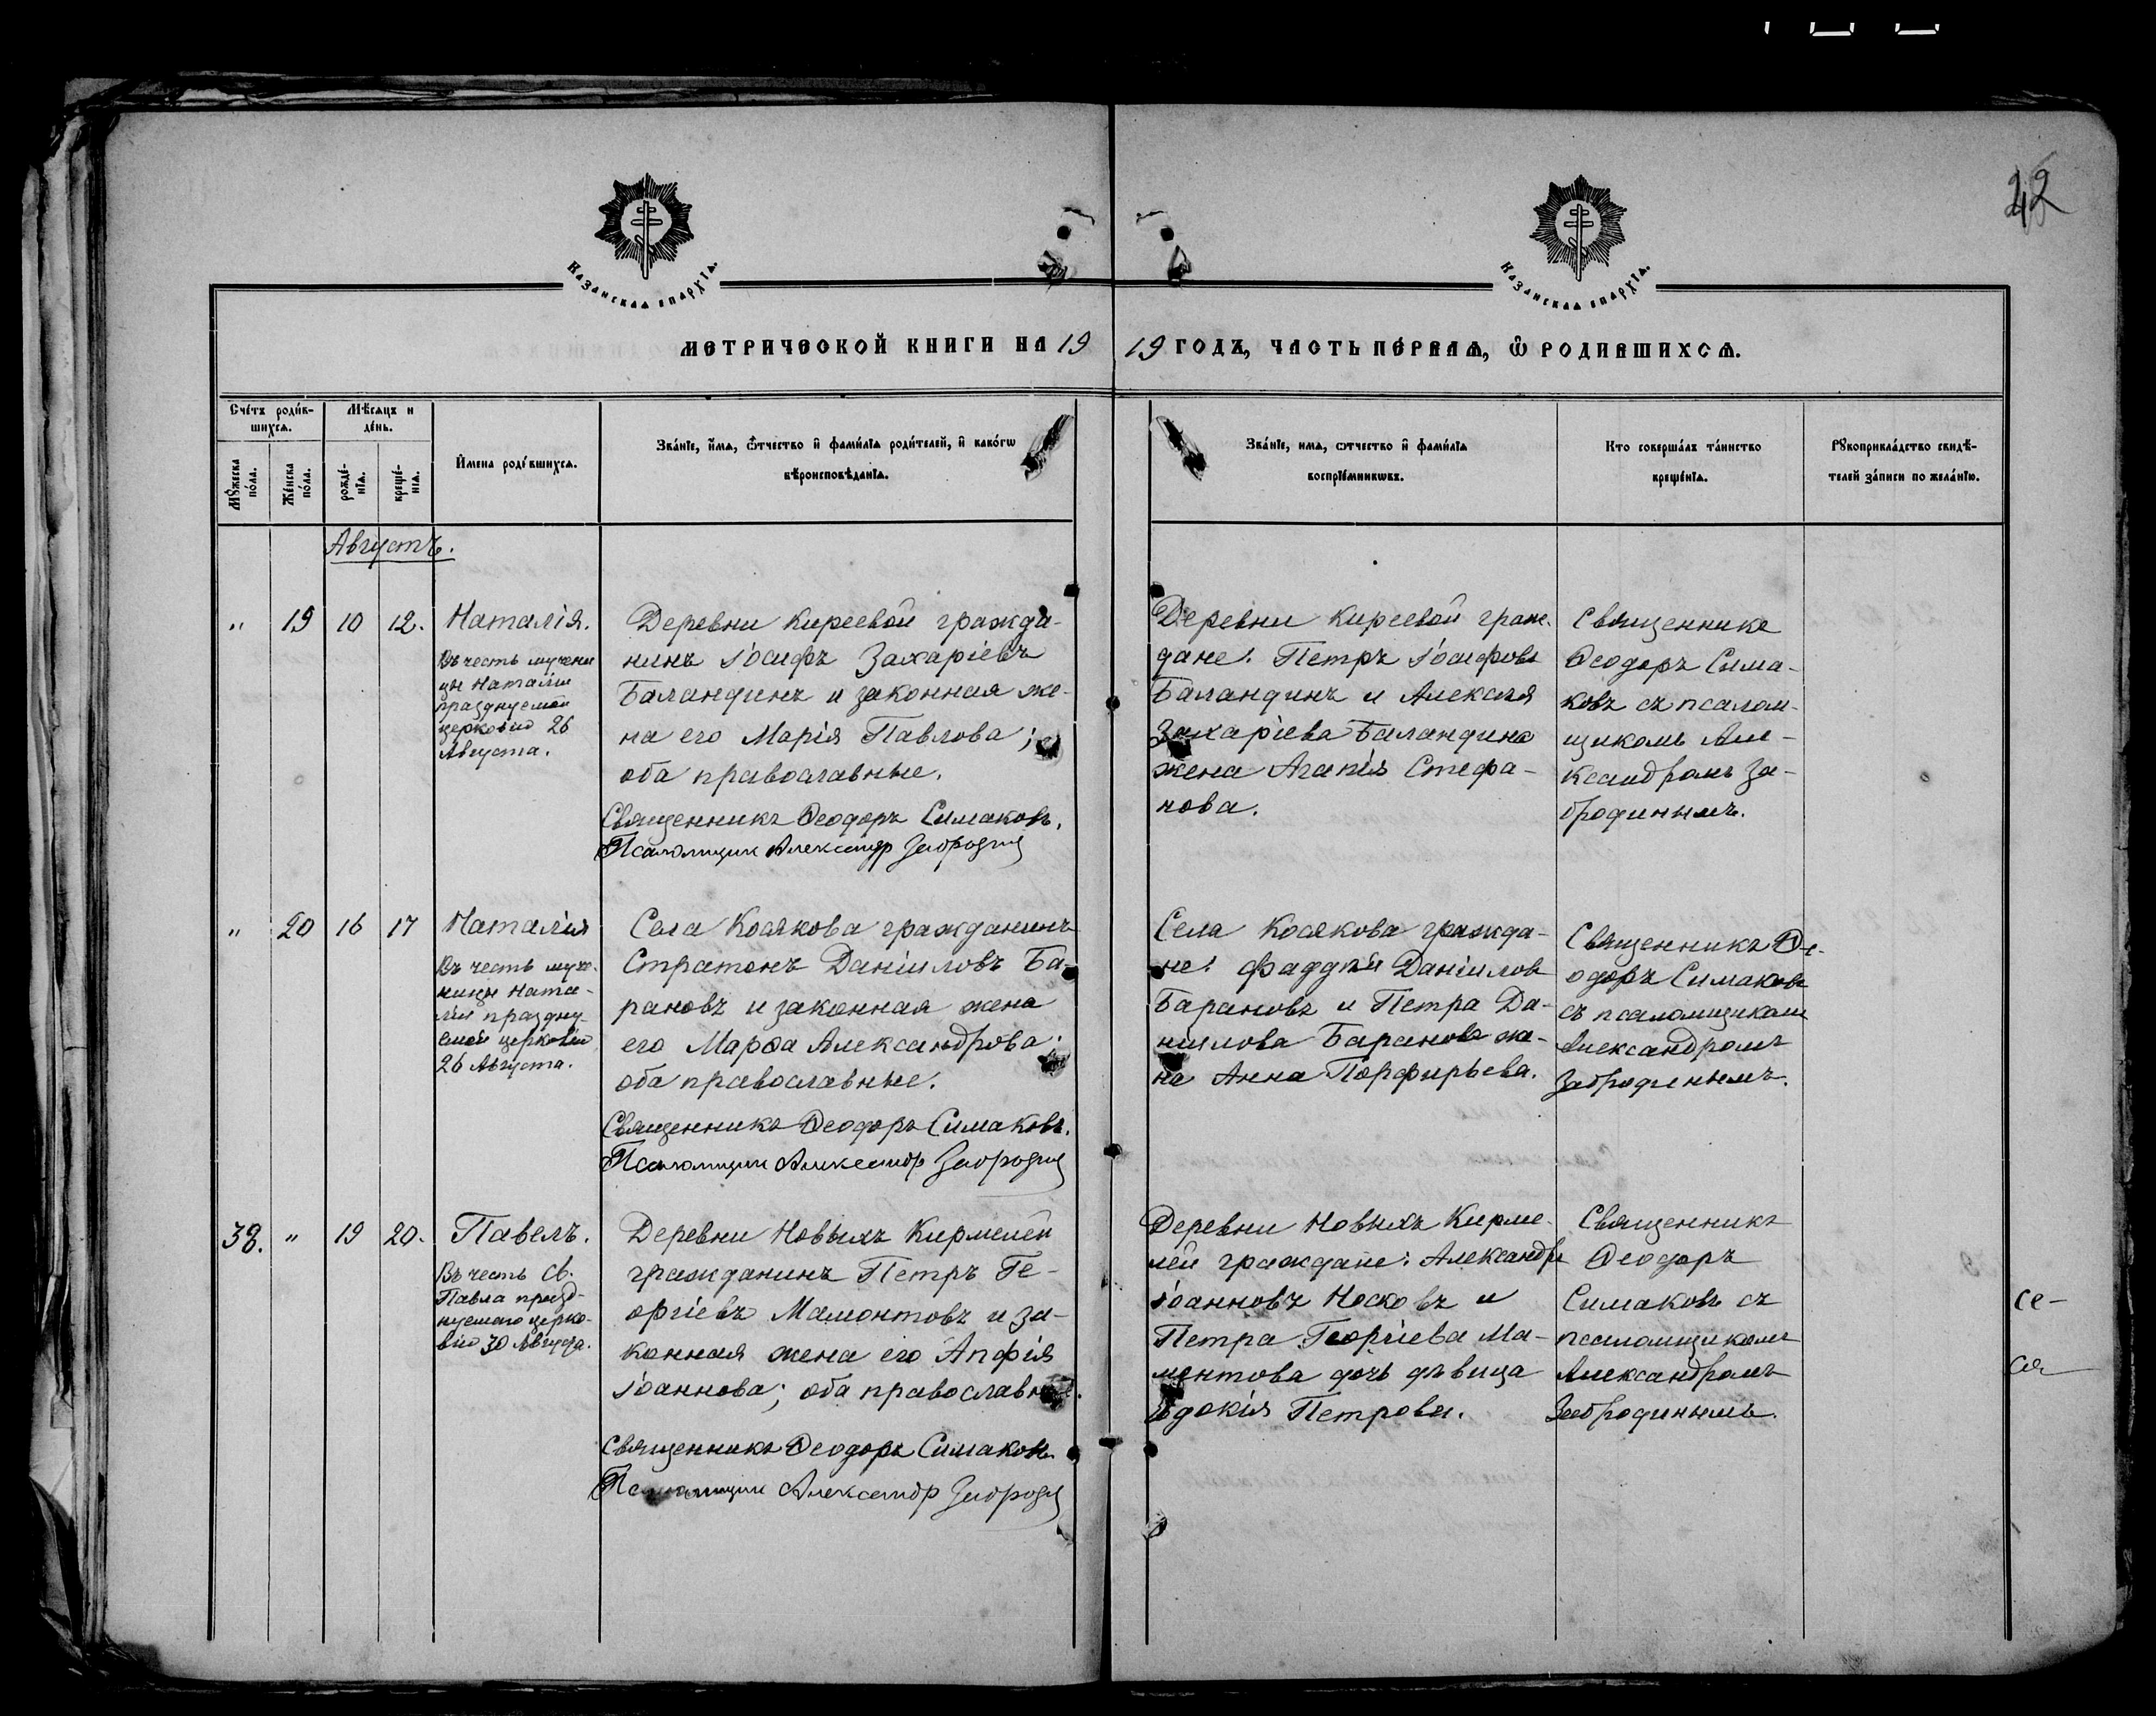 42
Казанская епархїа.
Казанская епархїа.
МЕТРИЧЕСКОЙ КНИГИ НА 1919 ГОДЪ, ЧАСТЬ ПЕ́РВАѦ, Ѡ РОДИВШИХСѦ.
Сче́тъ роди́в-
шихсѧ.
Мѣ́сѧцъ и
де́нь.
Мꙋ́жеска
по́ла.
Же́нска
по́ла.
рожде́-
нїѧ.
креще́-
нїѧ.
И҆мена̀ роди́вшихсѧ.
Зва́нїе, и҆́мѧ, ѻ҆́тчество и҆ фами́лїѧ роди́телей, и҆ како́гѡ
вѣроисповѣ́данїѧ.
Зва́нїе, имѧ, ѻтчество и҆ фами́лїѧ
воспрїе́мникѡвъ.
Кто соверша́лъ та́инство
креще́нїѧ.
Рꙋкоприкла́дство свидѣ́-
телей за́писи по жела́нїю.
Августъ.
" 19 10 12. Наталія.
Въ честь мучени
цы Наталіи
празднуемой
церковію 26
Августа.
Деревни Киреевой гражда-
нинъ Іосифъ Захаріевъ
Баландинъ и законная же-
на его Марія Павлова;
оба православные.
Священникъ Ѳеодоръ Симаковъ.
Псаломщик Александр Забродин
Деревни Киреевой граж-
дане: Петръ Іосифовъ
Баландинъ и Алексѣя
Захаріева Баландина
жена Агапія Стефа-
нова.
Священникъ
Ѳеодоръ Сима-
ковъ съ псалом-
щикомъ Але-
ксандромъ За-
бродинымъ.
" 20 16 17 Наталія
Въ честь муче-
ницы Ната-
ліи праздну-
емой церковію
26 Августа.
Села Косякова гражданинъ
Стратонъ Даніиловъ Ба-
рановъ и законная жена
его Марѳа Александрова;
оба православные.
Священникъ Ѳеодоръ Симаковъ.
Псаломщик Александр Забродин
Села Косякова гражда-
не: Фаддей Даніилов
Барановъ и Петра Да-
ніилова Баранова же-
на Анна Порфирьева.
Священникъ Ѳе-
одоръ Симаковъ
съ псаломщикомъ
Александромъ
Забродинымъ.
38. " 19 20. Павелъ.
Въ честь Св.
Павла празд-
нуемаго церко-
вію 30 Августа.
Деревни Новыхъ Кирмелей
гражданинъ Петръ Ге-
оргіевъ Мамонтовъ и за-
конная жена его Апфія
Іоаннова; оба православные.
Священникъ Ѳеодоръ Симаковъ
Псаломщик Александр Забродин
Деревни Новыхъ Кирме-
лей граждане: Александръ
Іоанновъ Носковъ и
Петра Георгіева Ма-
монтова дочь дѣвица
Евдокія Петрова.
Священникъ
Ѳеодоръ
Симаковъ съ
псаломщикомъ
Александромъ
Забродинымъ.
се-